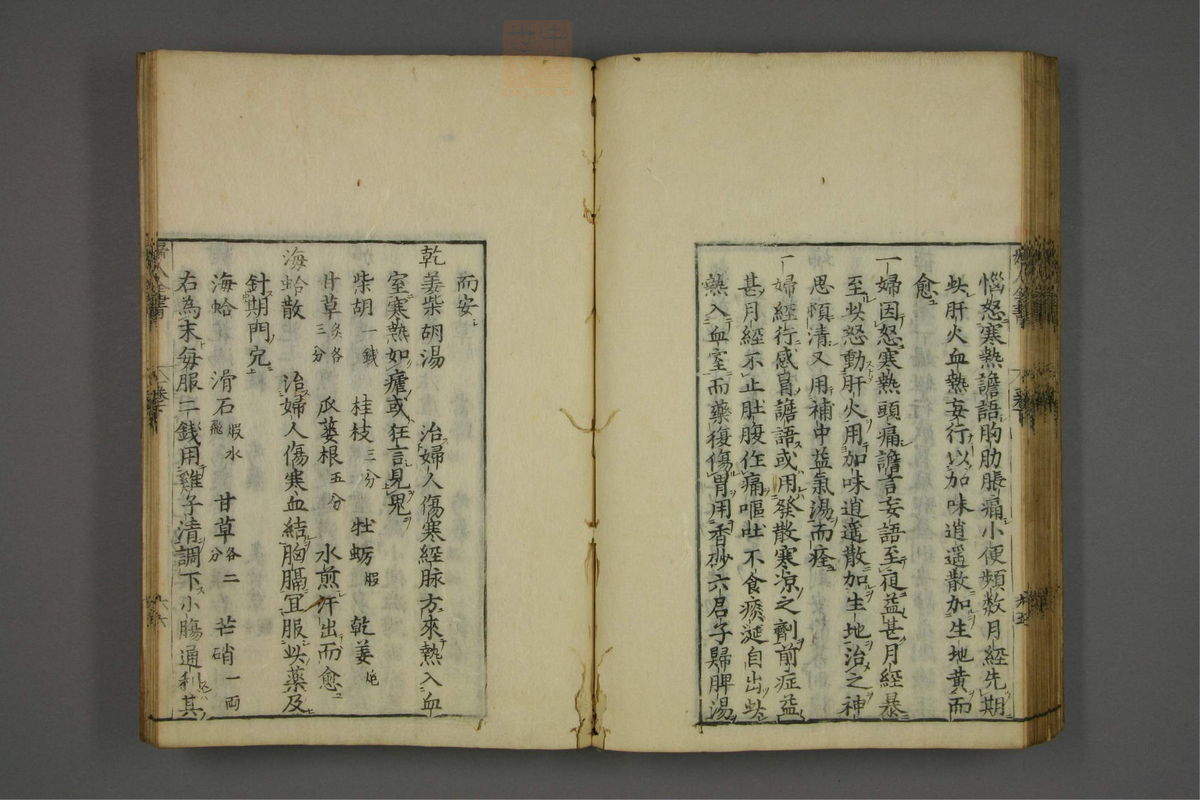 惱怒寒熱譫語胸肋脹痛小便頻数月經先期
此肝火血熱妄行以加味逍遥散加生地黄而
愈
一婦因怒寒熱頭痛譫言妄語至夜益甚月經暴
至此怒動肝火用加味逍遥散加生地治之神
思頓清又用補中益氣湯而痊
一婦經行感冐譫語或用發散寒凉之劑前症益
甚月經不止肚腹作痛嘔吐不食痰涎自出此
熱入血室而藥復傷胃用香砂六君子歸脾湯
而安
乾姜柴胡湯 治婦人傷寒經脉方來熱入血
室寒熱如瘧或狂言見鬼
柴胡一錢 桂枝三分 牡蛎煆 乾姜炮
甘草炙各三分 瓜蔞根五分 水煎汗出而愈
海蛤散 治婦人傷寒血結胸膈宜服此藥及
針期門穴
海蛤 滑石煆水飛 甘草各二分 芒硝一両
右為末毎服二銭用雞子清調下小腸通利其